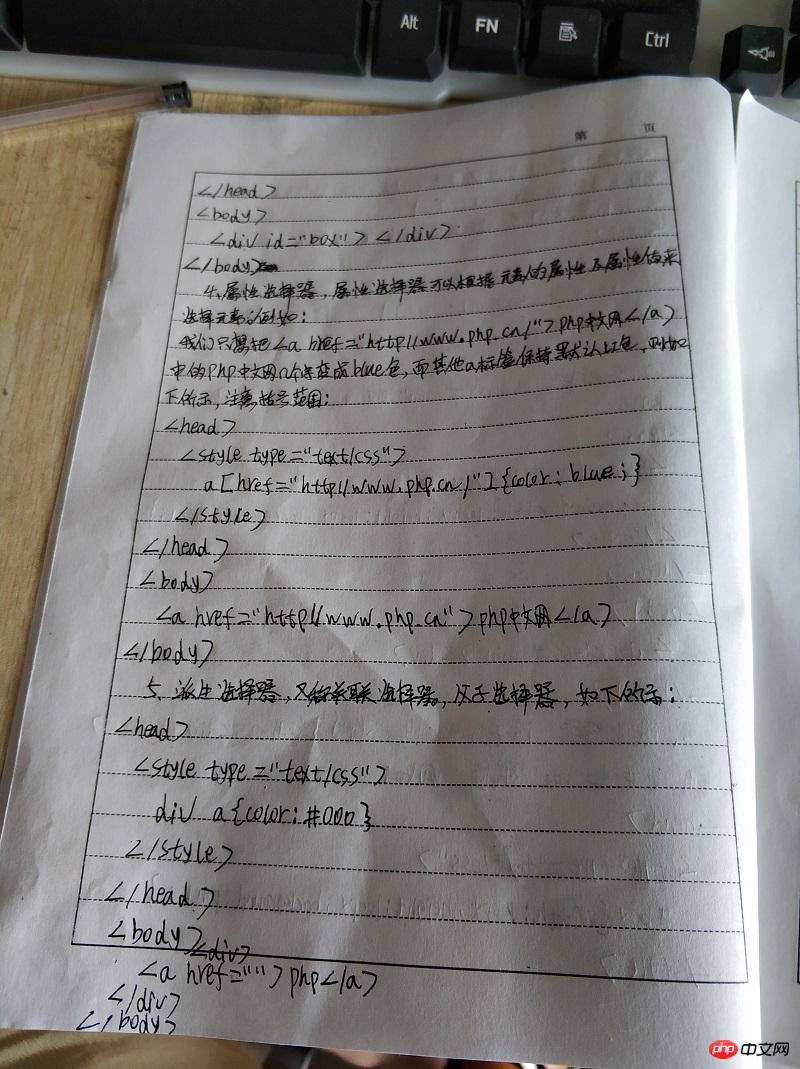 Alt
FN
Ctrl
第 页
</head>
<body>
<div id="box"> </div>
</body>
4、属性选择器,属性选择器可以根据元素的属性及属性值来
选择元素;例如:
我们只想把<a href="http//www.php.cn/">php中文网</a>
中的php中文网几个字变成blue色,而其他a标签保持默认红色,则如
下所示,注意括号范围:
<head>
<style type="text/css">
a[href="http//www.php.cn/"]{color:blue;}
</style>
</head>
<body>
<a href="http//www.php.cn">php中文网</a>
</body>
5、派生选择器,又叫关联选择器,父子选择器,如下所示:
<head>
<style type="text/css">
div a{color:#000}
</style>
</head>
<body>
<div>
<a href="">php</a>
</div>
</body>
php 中文网